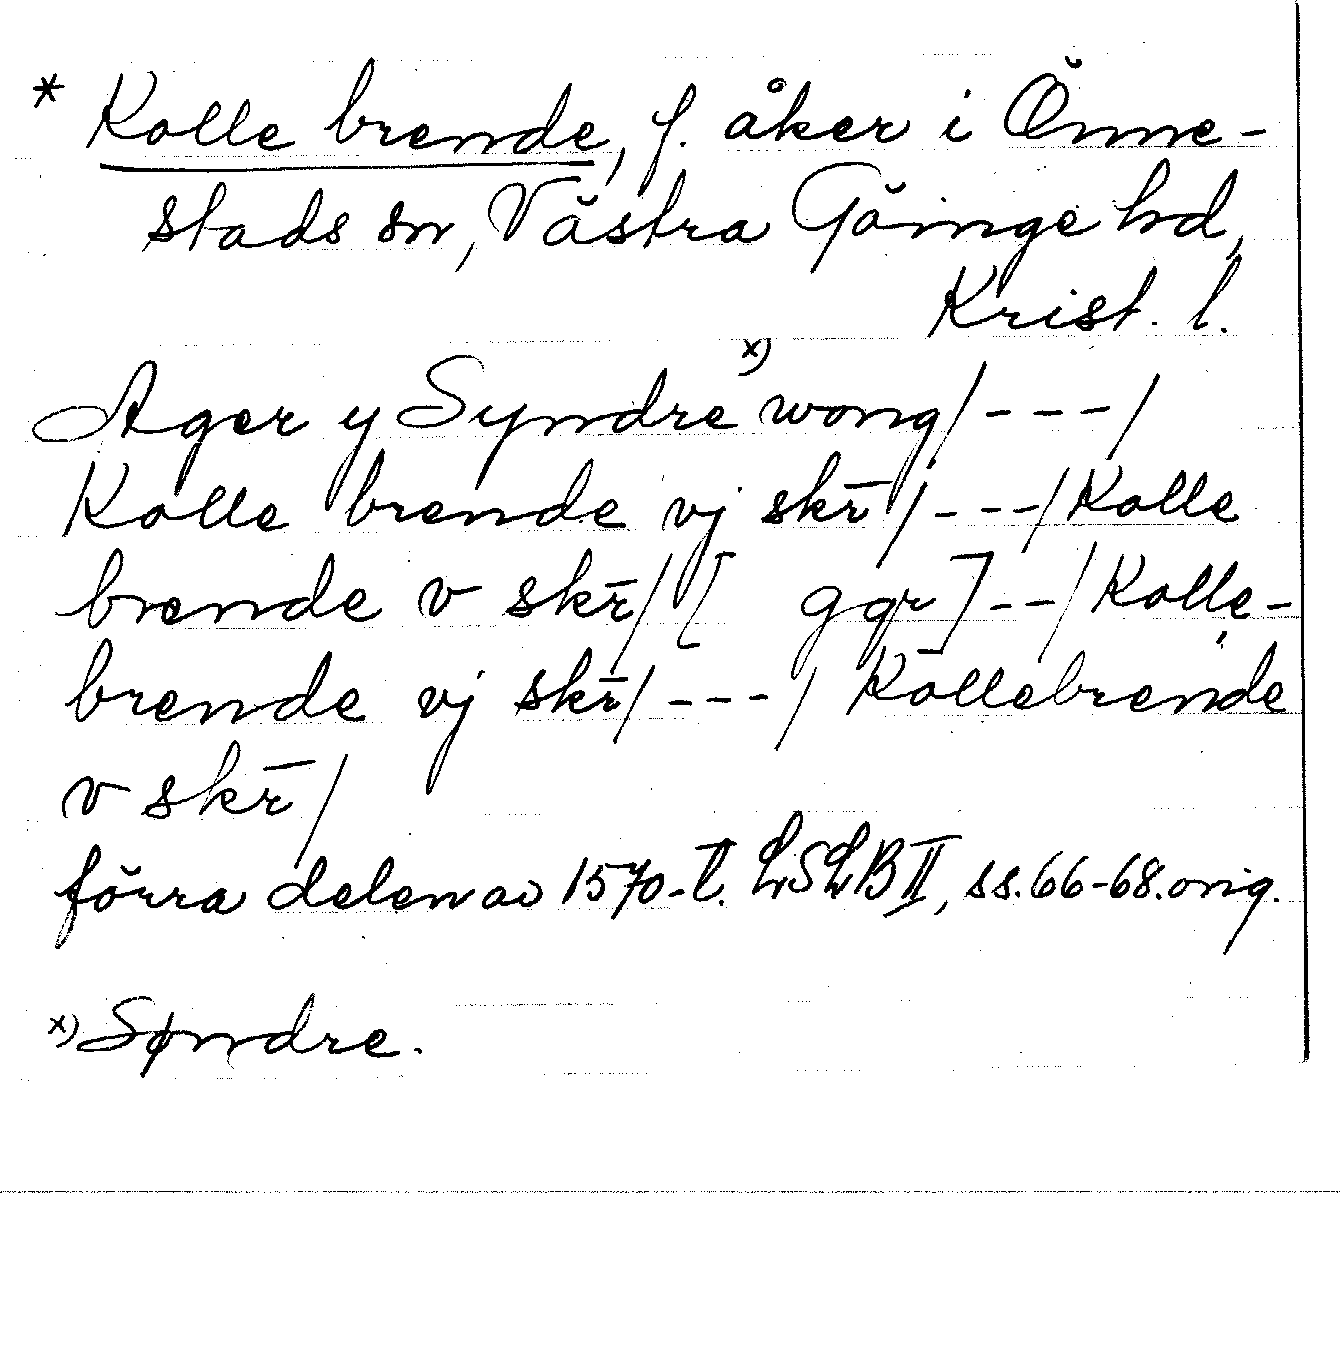 * Kolle brende, f. åker i Önne-
stads sn, Västra Göinge hd,
Krist. l.
Ager y Syndre x) wong/---/
Kolle brende vj skr̄/---/Kolle
brende v skr̄/[ ggr]--/Kolle-
brende vj skr̄/---/Kollebrende
v skr̄/
förra delen av 1570-t. LSLB II, ss.66-68.orig.
x) Søndre.